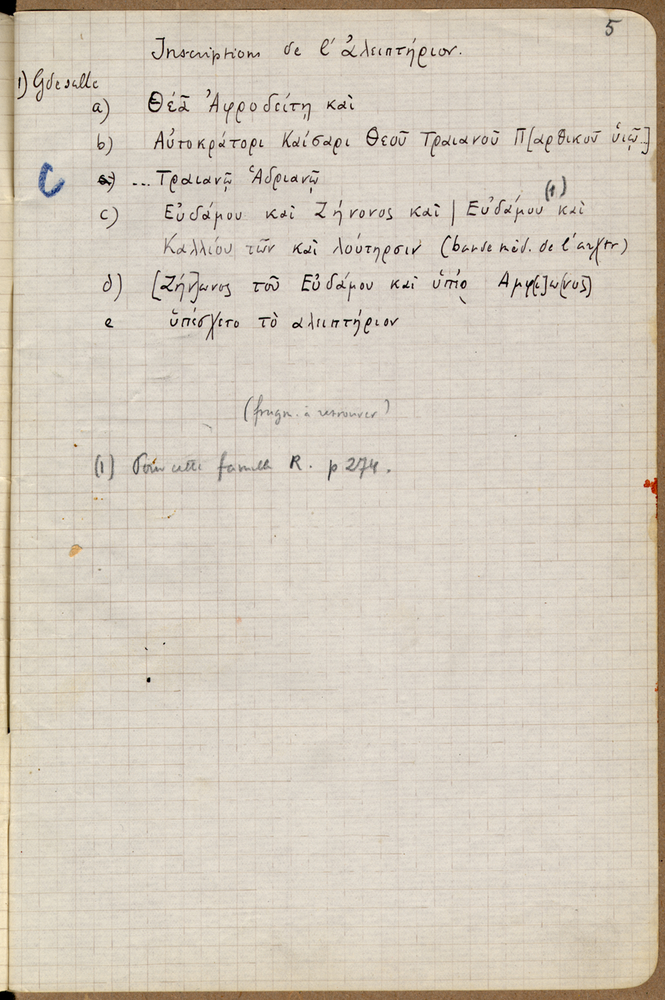 5
Inscriptions de l'ἀλειπτήριον.
1) Gde salle
a) Θεᾶ Ἀφροδείτῃ καὶ
b) Αὐτοκράτορι Καίσαρι Θεοῦ Τραιανοῦ Π[αρθικοῦ ὑιῷ..]
C ... Τραιανῷ Ἁδριανῷ
c) Εὐδάμου καὶ Ζήνονος καὶ | Εὐδάμου (1) καὶ
Καλλίου τῶν καὶ λούτηρσιν (bande méd. de l'
d) [Ζήν]ωνος τοῦ Εὐδάμου καὶ ὑπὲρ
e ὑπέσχετο τὸ αλειπτήριον
(fragm. à retrouver)
(1) Pour cette famille R. p 274.